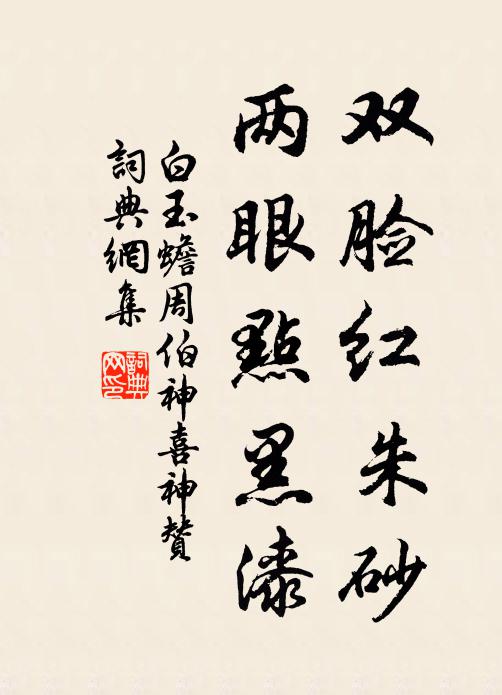 双脸红朱砂
两眼點黑漆
白玉蟾周伯神喜神贊
詞典網集
詞典网印